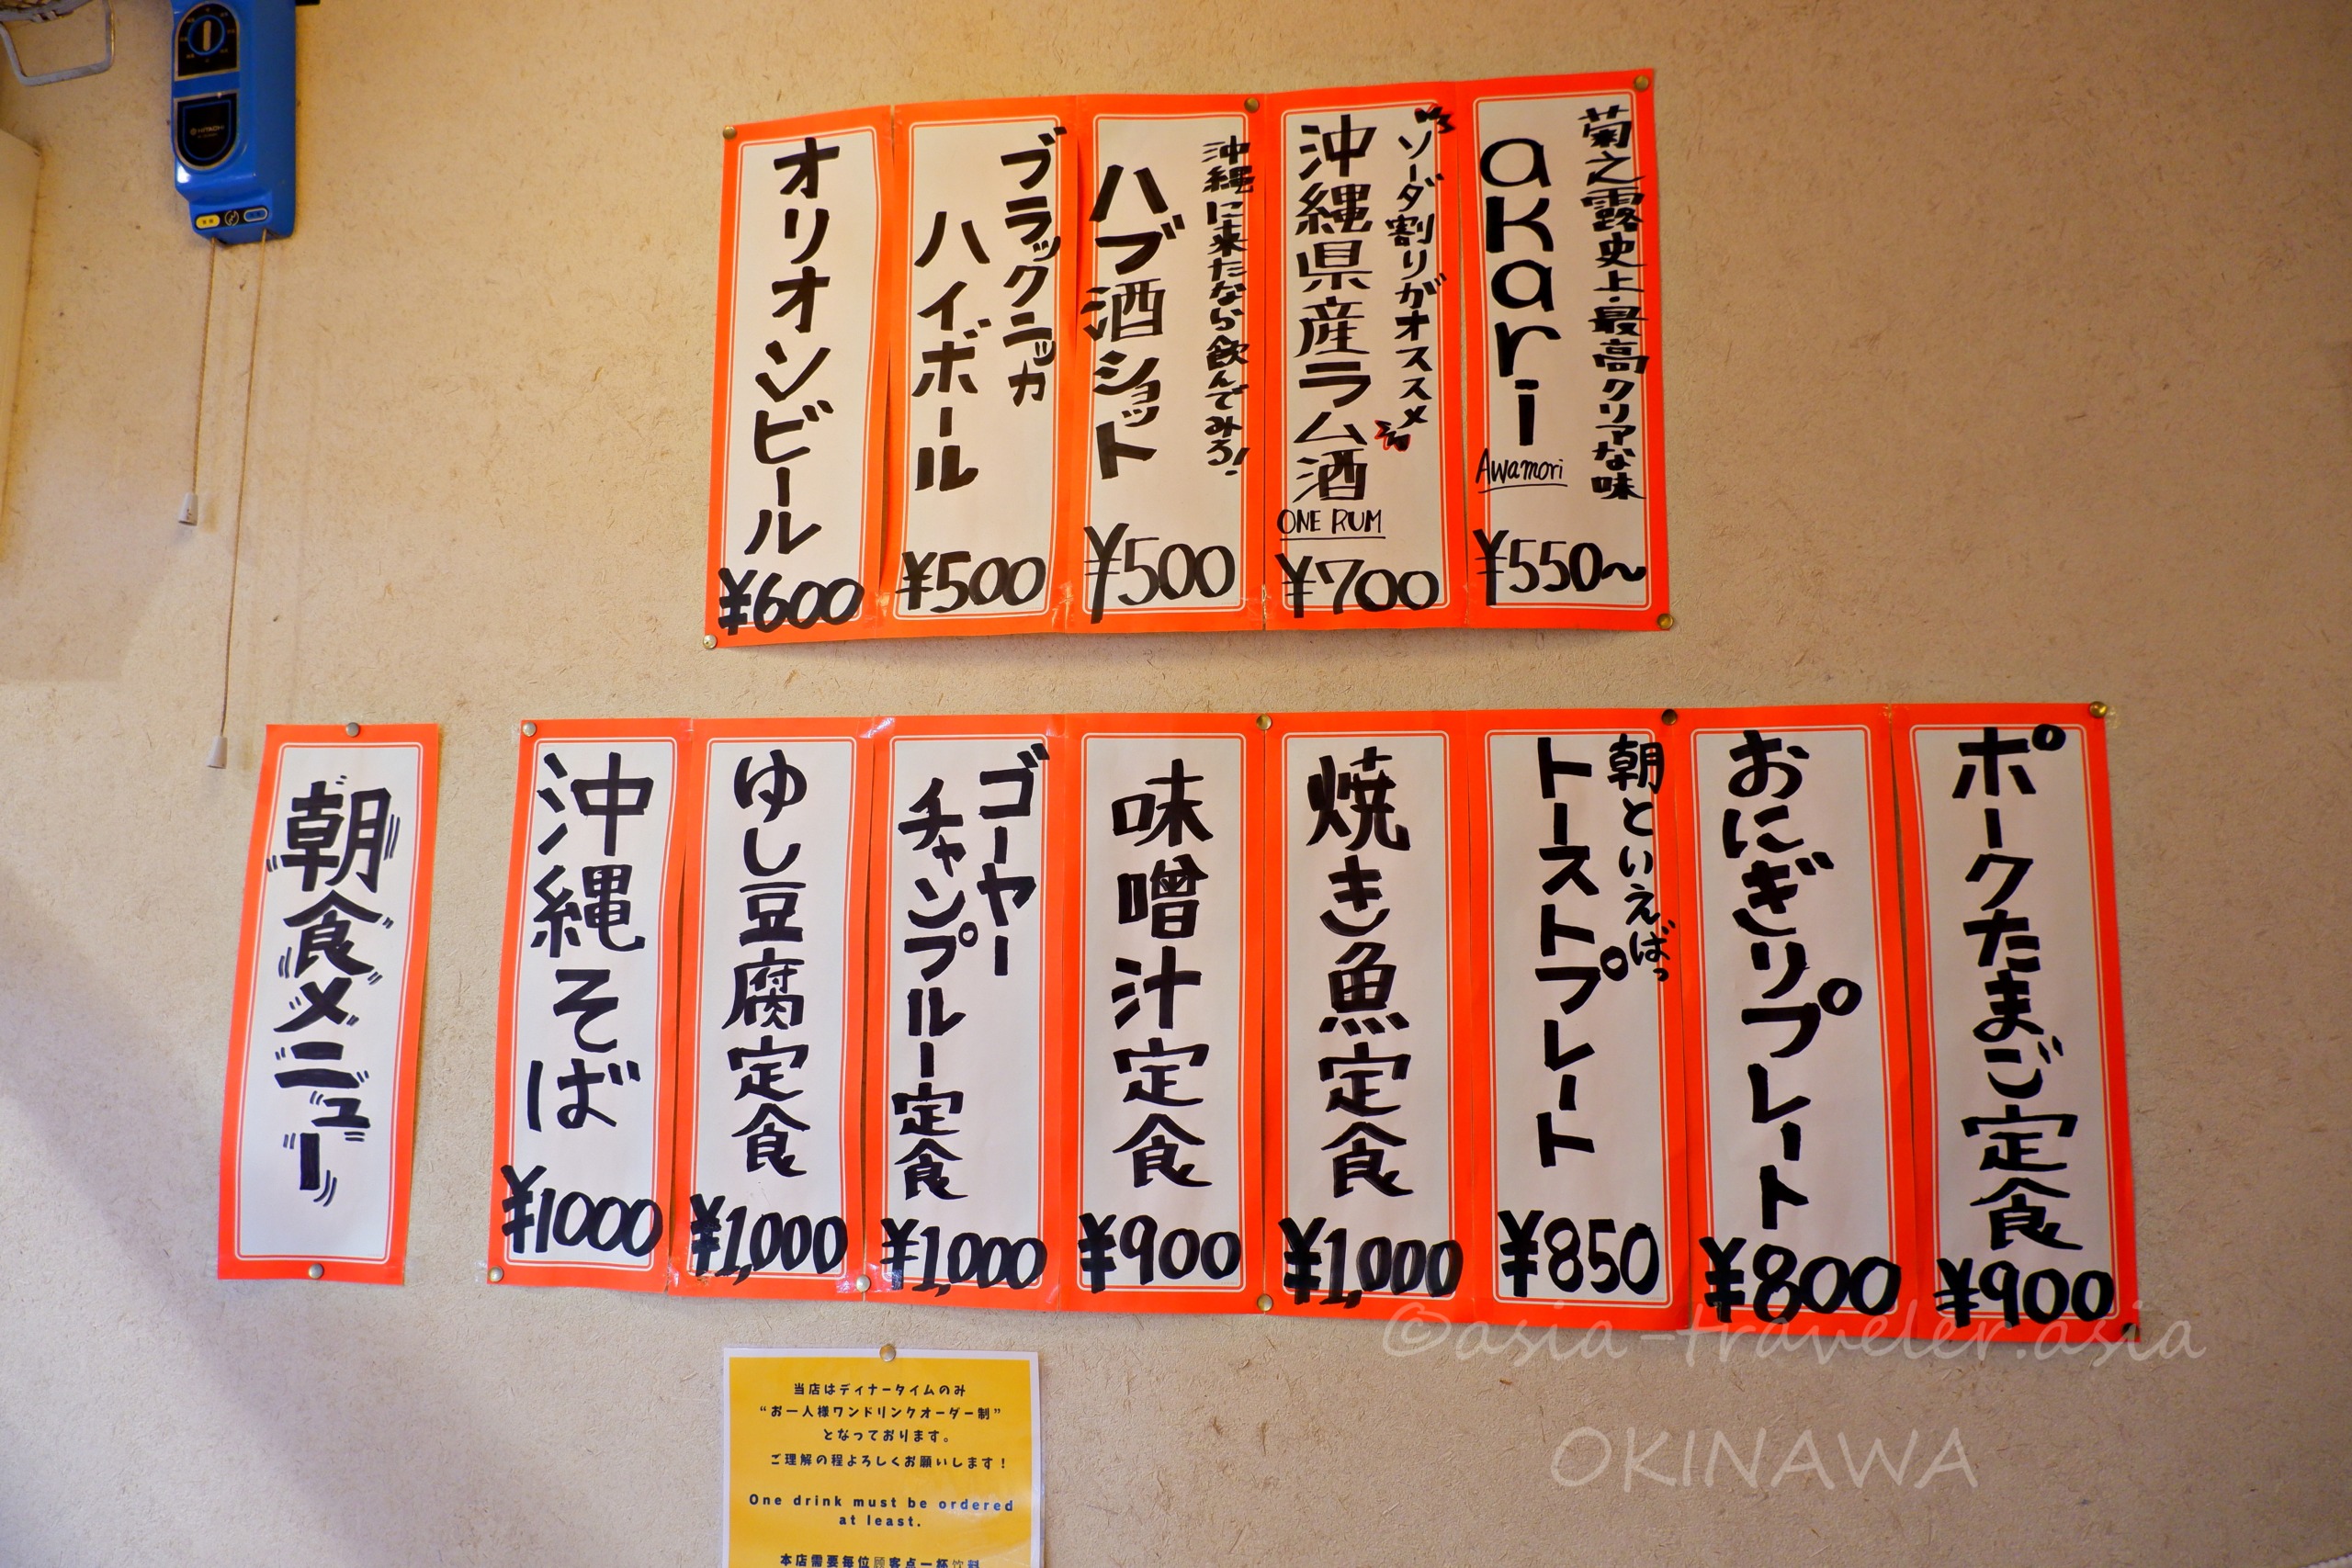 菊之露史上・最高クリアな味
akari
Awamori
¥550～
ソーダ割りがオススメ
沖縄県産ラム酒
ONE RUM
¥700
沖縄に来たなら飲んでみろ!
ハブ酒ショット
¥500
ブラックニッカ
ハイボール
¥500
オリオンビール
¥600
ポークたまご定食
¥900
おにぎりプレート
¥800
朝といえばっ
トーストプレート
¥850
焼き魚定食
¥1,000
味噌汁定食
¥900
ゴーヤー
チャンプルー定食
¥1,000
ゆし豆腐定食
¥1,000
沖縄そば
¥1000
朝食メニュー
当店はディナータイムのみ
“お一人様ワンドリンクオーダー制”
となっております。
ご理解の程よろしくお願いします！
One drink must be ordered
at least.
本店需要每位顾客点一杯饮料
HITACHI
©asia-traveler.asia
OKINAWA